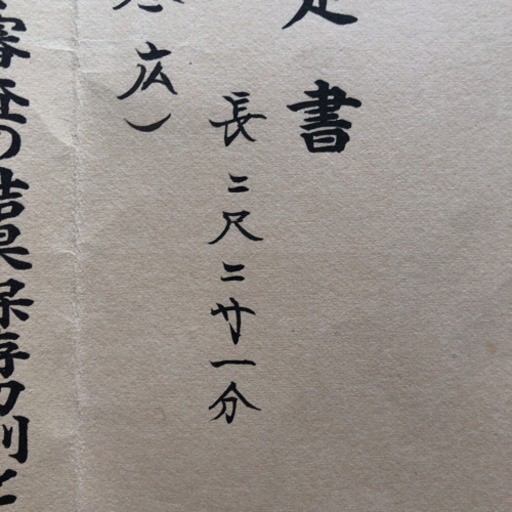 定書
長二尺二寸一分
広）
審査の結果保存刀剣と